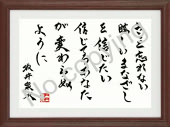 きっと忘れない
眩しいまなざし
を信じたい
信じてるあなた
が変わらぬ
ように
坂井泉水